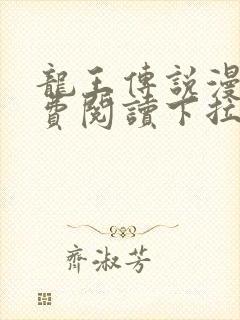 龍王傳說漫
費閱讀下拉
齊淑芳